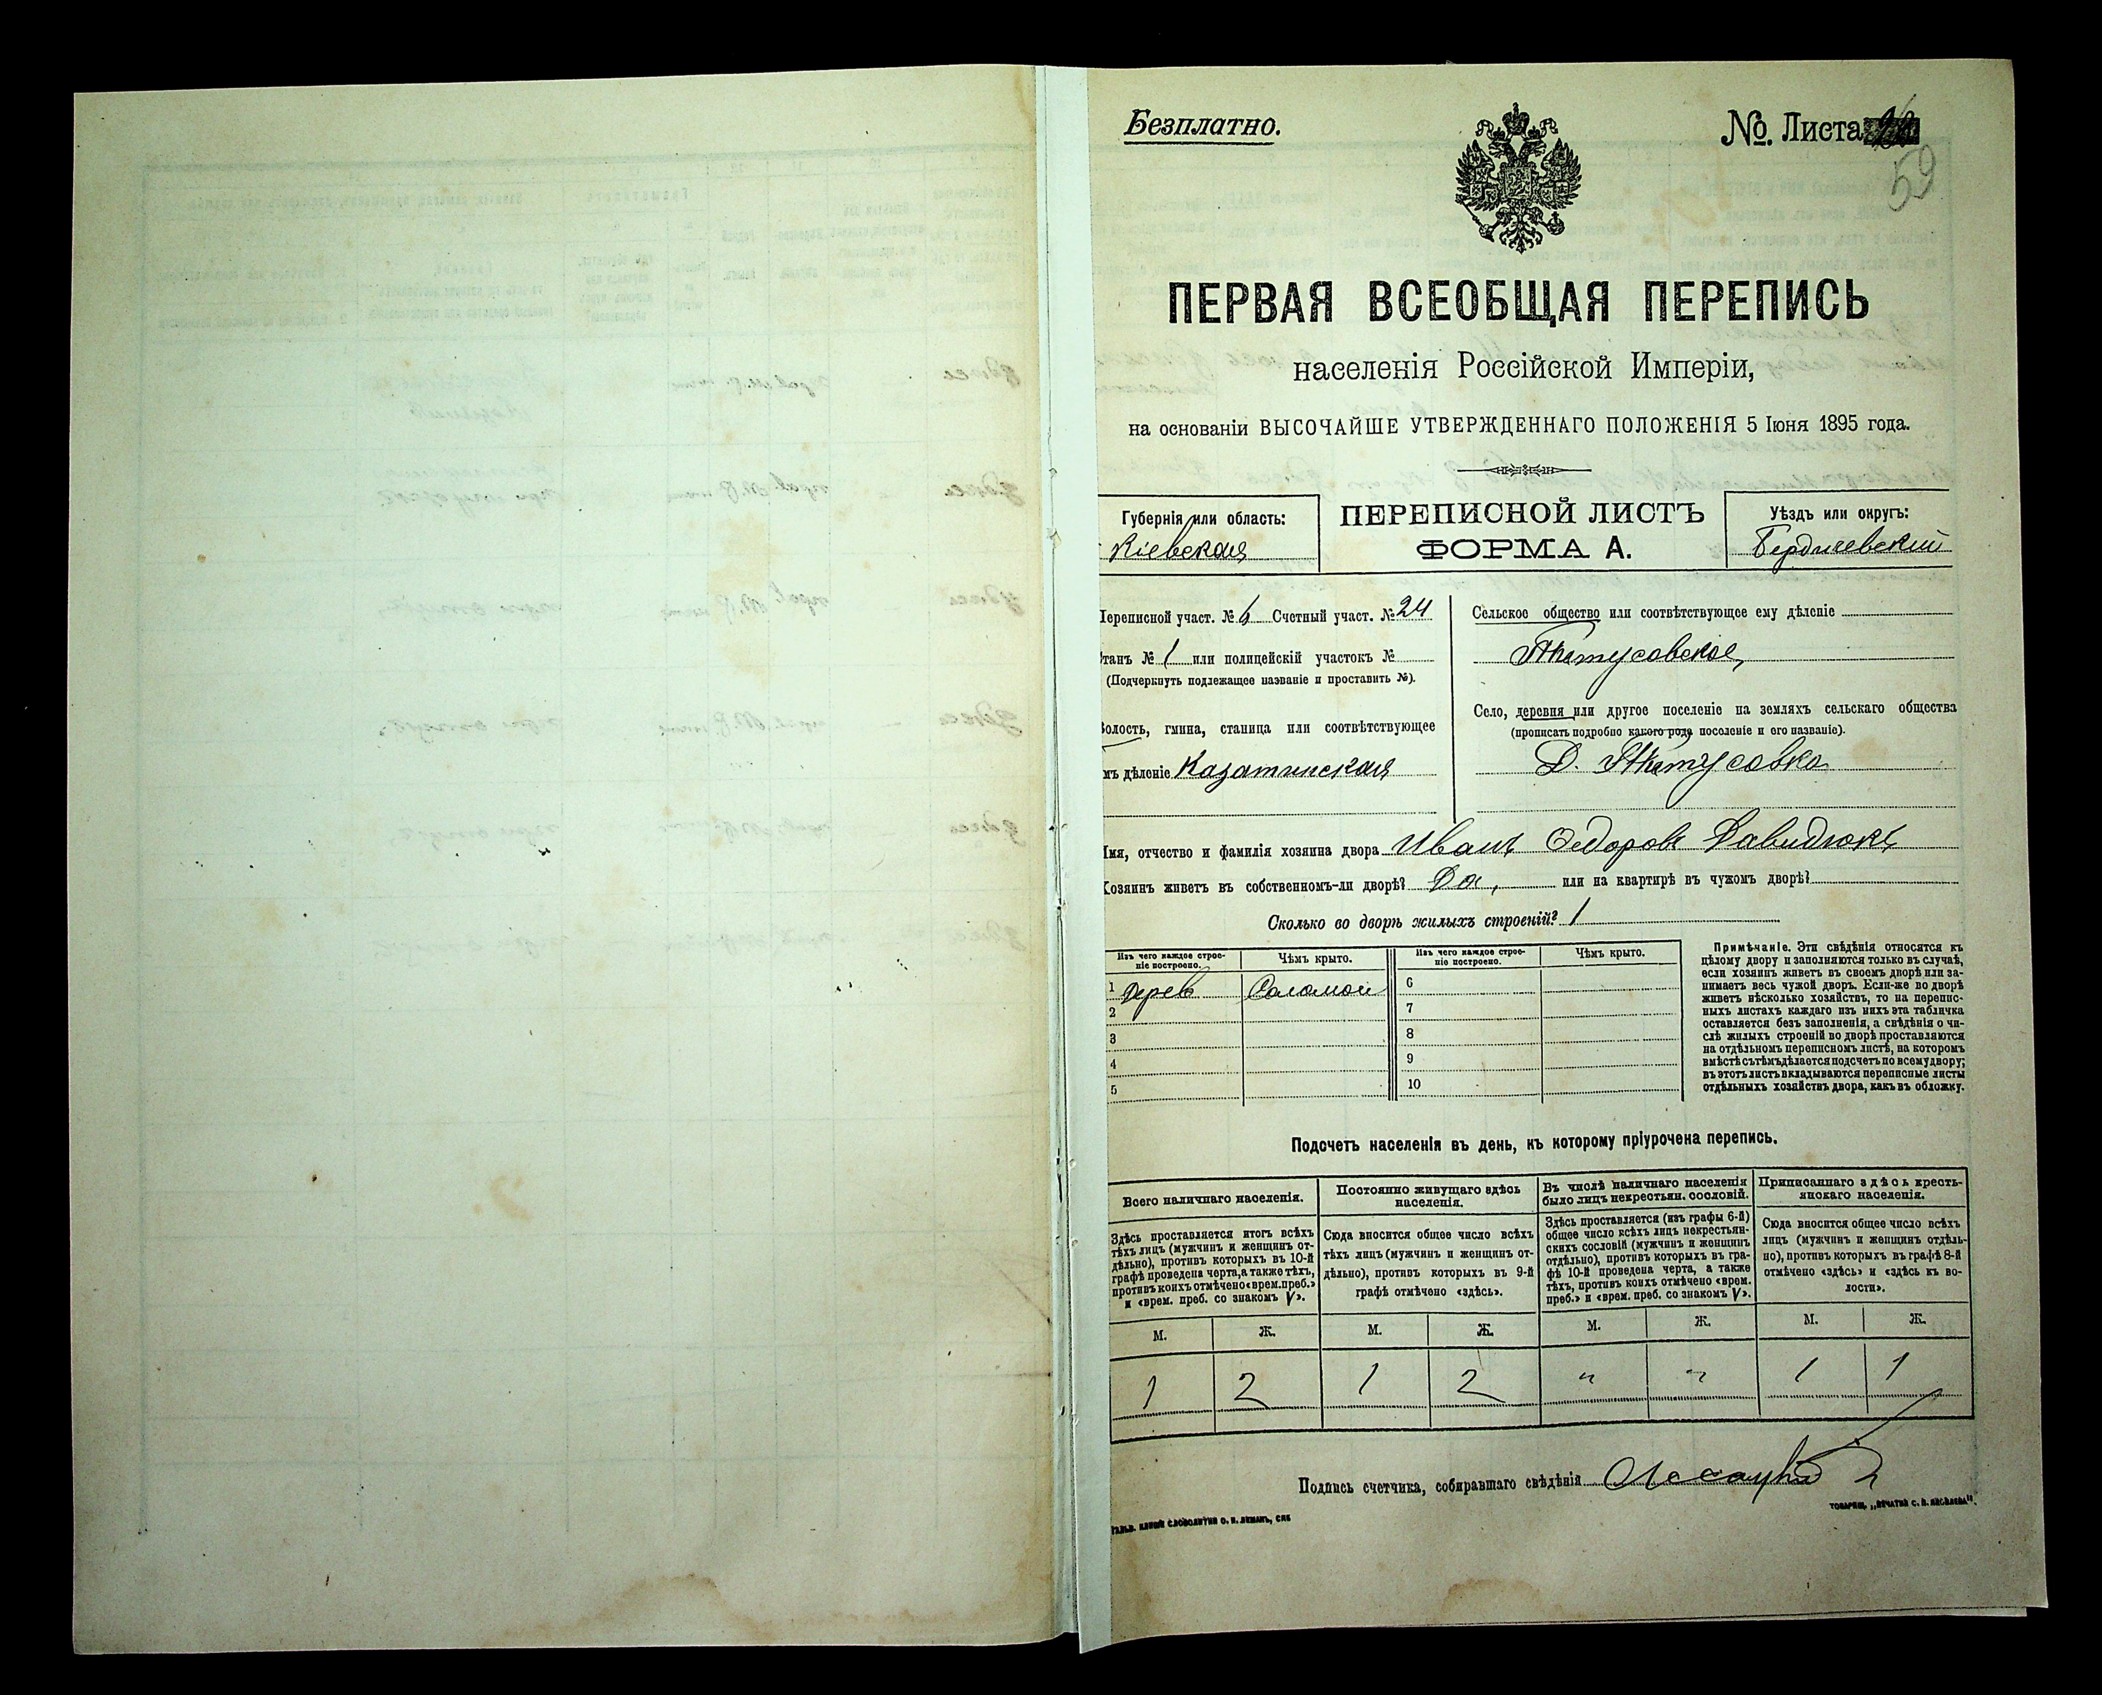 Безплатно.
№. Листа
59
ПЕРВАЯ ВСЕОБЩАЯ ПЕРЕПИСЬ
населенія Россійской Имперіи,
на основаніи ВЫСОЧАЙШЕ УТВЕРЖДЕННАГО ПОЛОЖЕНІЯ 5 Іюня 1895 года.
Губернія или область:
Кіевская
ПЕРЕПИСНОЙ ЛИСТЪ
ФОРМА А.
Уѣздъ или округъ:
Бердичевский
Переписной участ. № 6 Счетный участ. № 24
танъ № 1 или полицейскій участокъ №
(Подчеркнуть подлежащее названіе и проставить №).
олость, гмина, станица или соотвѣтствующее
мъ дѣленіе Казатинская
Сельское общество или соотвѣтствующее ему дѣленіе
Село, деревня или другое поселеніе на земляхъ сельскаго общества
(прописать подробно какого рода поселеніе и его названіе).
Д.
Имя, отчество и фамилія хозяина двора Иванъ Федоровъ Давидюкъ
Хозяинъ живетъ въ собственномъ-ли дворѣ? Да, или на квартирѣ въ чужомъ дворѣ?
Сколько во дворѣ жилыхъ строеній? 1
Изъ чего каждое строе-
ніе построено.
Чѣмъ крыто.
Изъ чего каждое строе-
ніе построено.
Чѣмъ крыто.
1 Дерев Соломой 6
2 7
3 8
4 9
5 10
Примѣчаніе. Эти свѣдѣнія относятся къ
цѣлому двору и заполняются только въ случаѣ,
если хозяинъ живетъ въ своемъ дворѣ или за-
нимаетъ весь чужой дворъ. Если-же во дворѣ
живетъ нѣсколько хозяйствъ, то на перепис-
ныхъ листахъ каждаго изъ нихъ эта табличка
оставляется безъ заполненія, а свѣдѣнія о чи-
слѣ жилыхъ строеній во дворѣ проставляются
на отдѣльномъ переписномъ листѣ, на которомъ
вмѣстѣ съ тѣмъ дѣлается подсчетъ по всему двору;
въ этотъ листъ вкладываются переписные листы
отдѣльныхъ хозяйствъ двора, какъ въ обложку.
Подсчетъ населенія въ день, къ которому пріурочена перепись.
Всего наличнаго населенія.
Здѣсь проставляется итогъ всѣхъ
тѣхъ лицъ (мужчинъ и женщинъ от-
дѣльно), противъ которыхъ въ 10-й
графѣ проведена черта, а также тѣхъ,
противъ коихъ отмѣчено «врем. преб.»
и «врем. преб. со знакомъ V».
Постоянно живущаго здѣсь
населенія.
Сюда вносится общее число всѣхъ
тѣхъ лицъ (мужчинъ и женщинъ от-
дѣльно), противъ которыхъ въ 9-й
графѣ отмѣчено «здѣсь».
Въ числѣ наличнаго населенія
было лицъ некрестьян. сословій.
Здѣсь проставляется (изъ графы 6-й)
общее число всѣхъ лицъ некрестьян-
скихъ сословій (мужчинъ и женщинъ
отдѣльно), противъ которыхъ въ гра-
фѣ 10-й проведена черта, а также
тѣхъ, противъ коихъ отмѣчено «врем.
преб.» и «врем. преб. со знакомъ V».
Приписаннаго здѣсь кресть-
янскаго населенія.
Сюда вносится общее число всѣхъ
лицъ (мужчинъ и женщинъ отдѣль-
но), противъ которыхъ въ графѣ 8-й
отмѣчено «здѣсь» и «здѣсь къ во-
лости».
М. Ж. М. Ж. М. Ж. М. Ж.
1 2 1 2 " " 1 1
Подпись счетчика, собиравшаго свѣдѣнія